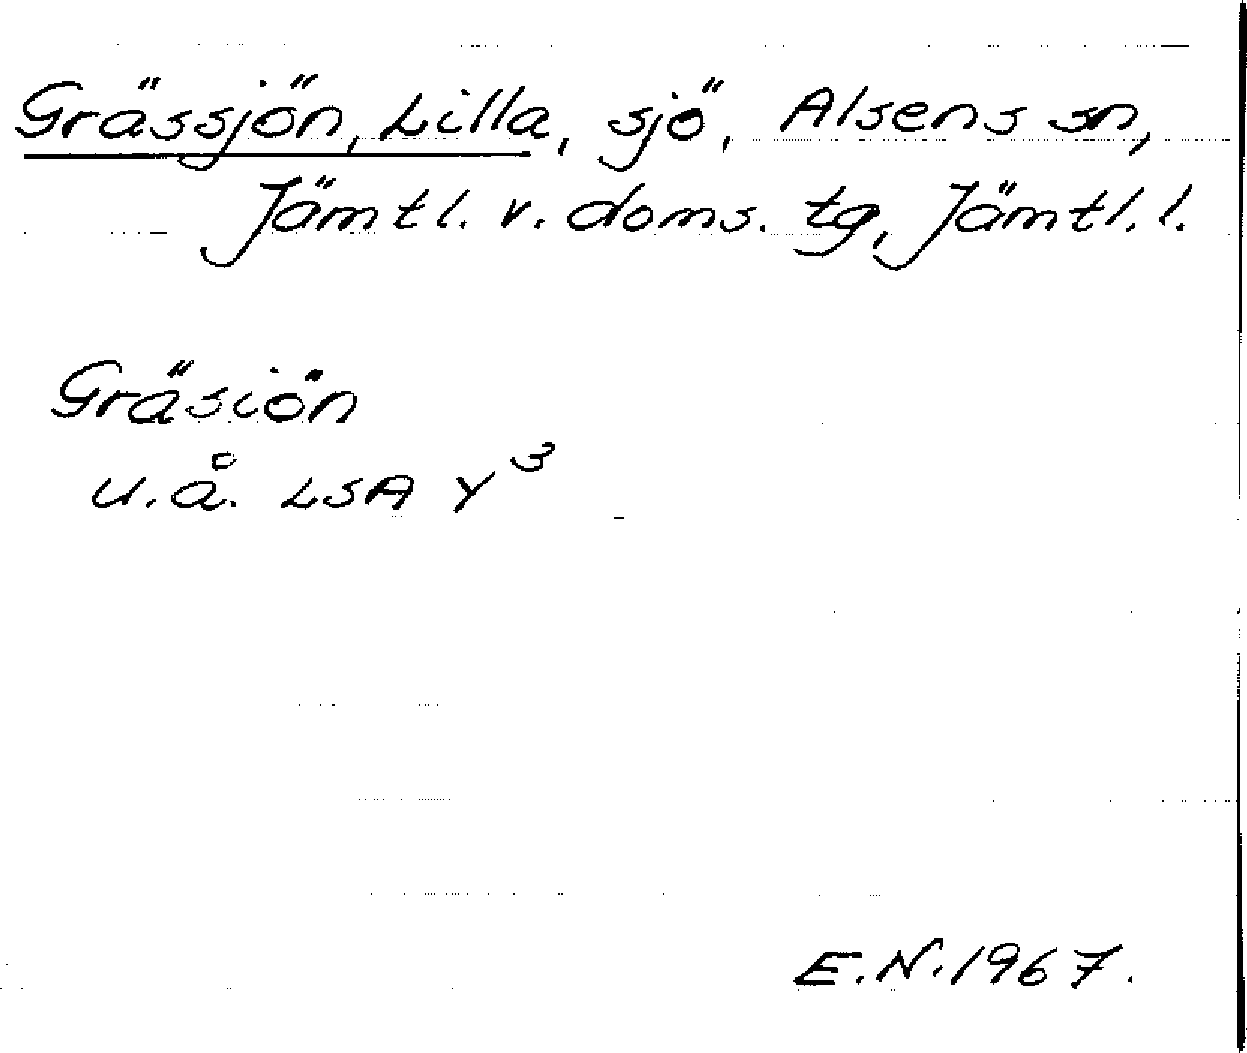 Grässjön, Lilla, sjö, Alsens sn,
Jämtl. v. doms. tg, Jämtl. l.
Gräsiön
u.å. LSA Y³
E.N. 1967.